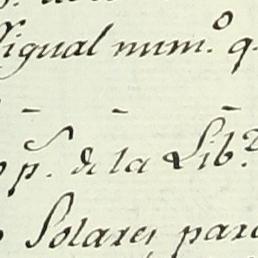 igual num.º q.
p.s de la Lib.a
Solares para